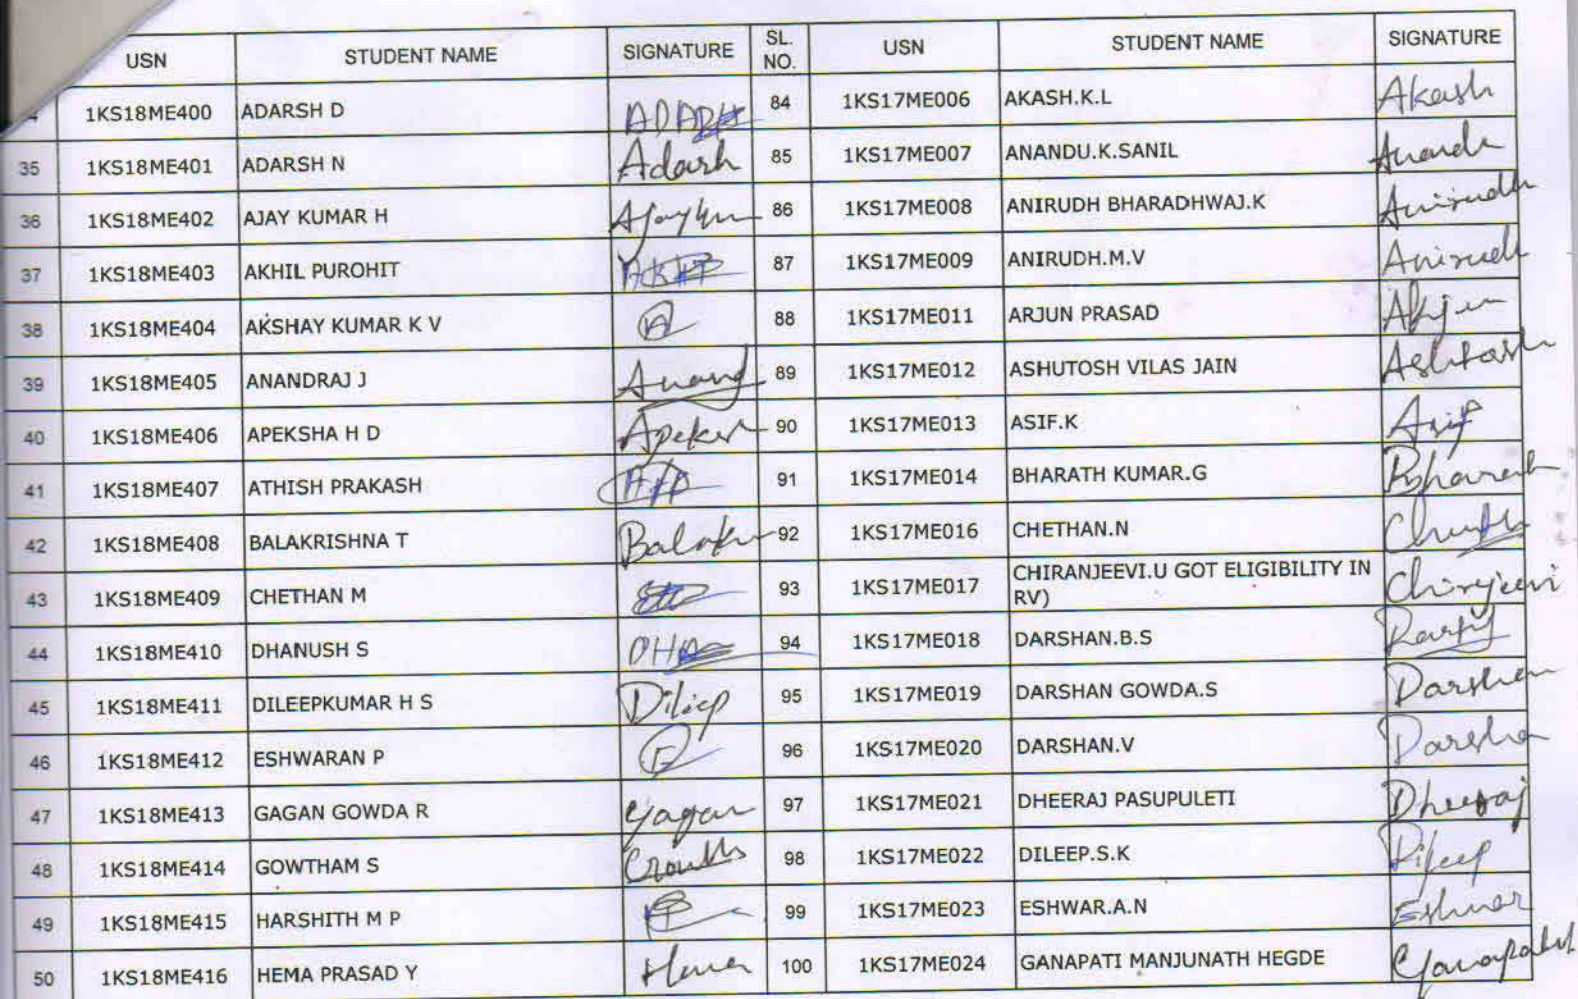 USN STUDENT NAME SIGNATURE SL. NO. USN STUDENT NAME SIGNATURE
1KS18ME400 ADARSH D 84 1KS17ME006 AKASH.K.L Akash
35 1KS18ME401 ADARSH N Adarsh 85 1KS17ME007 ANANDU.K.SANIL
36 1KS18ME402 AJAY KUMAR H 86 1KS17ME008 ANIRUDH BHARADHWAJ.K Anirudh
37 1KS18ME403 AKHIL PUROHIT 87 1KS17ME009 ANIRUDH.M.V Anirudh
38 1KS18ME404 AKSHAY KUMAR K V 88 1KS17ME011 ARJUN PRASAD
39 1KS18ME405 ANANDRAJ J Anand 89 1KS17ME012 ASHUTOSH VILAS JAIN
40 1KS18ME406 APEKSHA H D 90 1KS17ME013 ASIF.K Asif
41 1KS18ME407 ATHISH PRAKASH 91 1KS17ME014 BHARATH KUMAR.G
42 1KS18ME408 BALAKRISHNA T 92 1KS17ME016 CHETHAN.N
43 1KS18ME409 CHETHAN M 93 1KS17ME017 CHIRANJEEVI.U GOT ELIGIBILITY IN
RV)
44 1KS18ME410 DHANUSH S 94 1KS17ME018 DARSHAN.B.S
45 1KS18ME411 DILEEPKUMAR H S Dilip 95 1KS17ME019 DARSHAN GOWDA.S Darshan
46 1KS18ME412 ESHWARAN P 96 1KS17ME020 DARSHAN.V
47 1KS18ME413 GAGAN GOWDA R Gagan 97 1KS17ME021 DHEERAJ PASUPULETI Dheeraj
48 1KS18ME414 GOWTHAM S 98 1KS17ME022 DILEEP.S.K Dileep
49 1KS18ME415 HARSHITH M P 99 1KS17ME023 ESHWAR.A.N Eshwar
50 1KS18ME416 HEMA PRASAD Y 100 1KS17ME024 GANAPATI MANJUNATH HEGDE